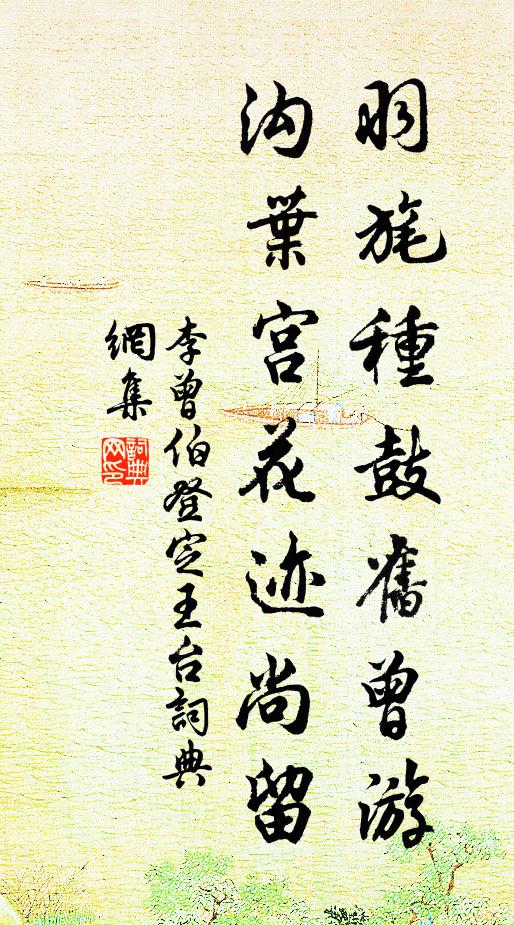 羽旄種鼓舊曾游
沟葉宫花迹尚留
李曾伯登定王台詞典
網集
詞典网印